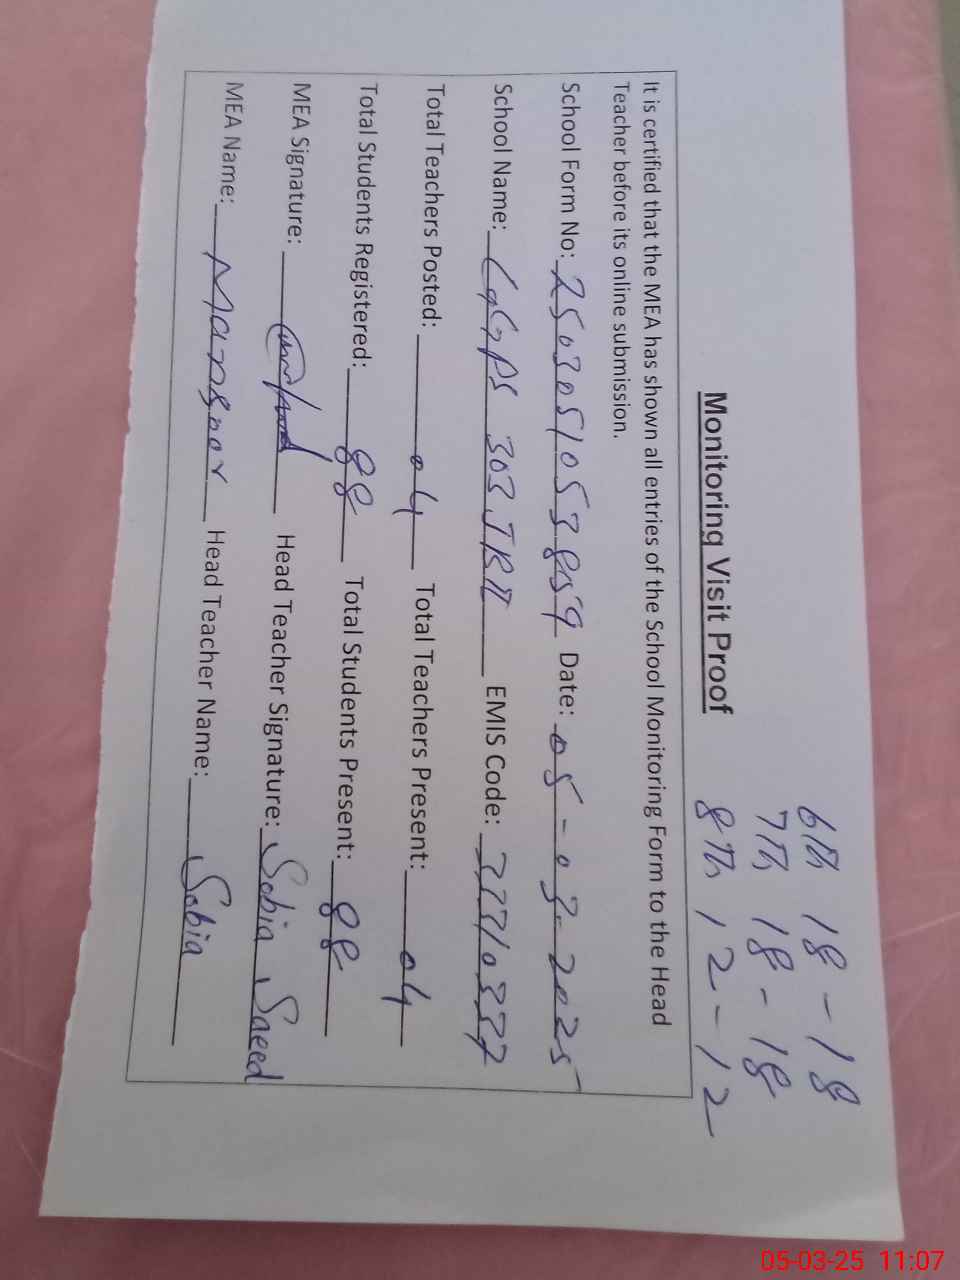 6th 18 - 18
7th 18 - 18
Monitoring Visit Proof 8th 12 - 12
It is certified that the MEA has shown all entries of the School Monitoring Form to the Head
Teacher before its online submission.
School Form No: Date: 05-03-2025
School Name: GGPS 303 EMIS Code:
Total Teachers Posted: 04 Total Teachers Present: 04
Total Students Registered: 88 Total Students Present: 88
MEA Signature: Head Teacher Signature: Sobia Saeed
MEA Name: Mansoor Head Teacher Name: Sobia
05-03-25 11:07